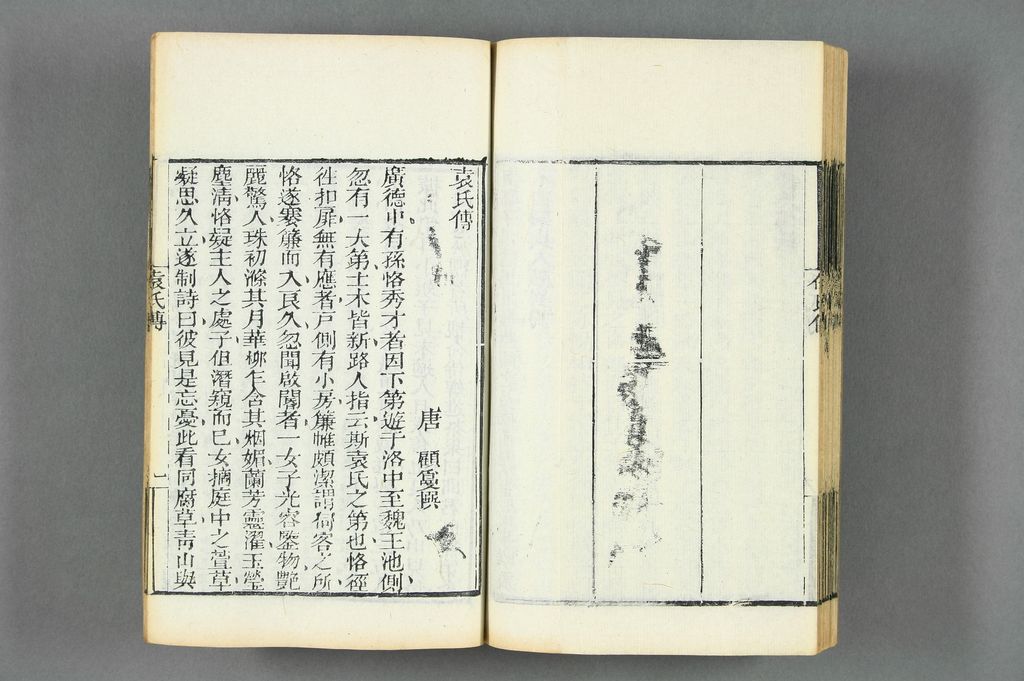 袁氏傳
唐　顧敻撰
廣德中有孫恪秀才者因下第遊于洛中至魏王池側
忽有一大第土木皆新路人指云斯袁氏之第也恪徑
徃扣扉無有應者戶側有小房簾帷頗潔謂伺客之所
恪遂褰簾而入良久忽聞啟關者一女子光容鑒物艷
麗驚人珠初滌其月華柳乍含其烟媚蘭芳靈濯玉瑩
塵清恪疑主人之處子但潛窺而已女摘庭中之萱草
凝思久立遂制詩曰彼見是忘憂此看同腐草青山與
袁氏傳
一